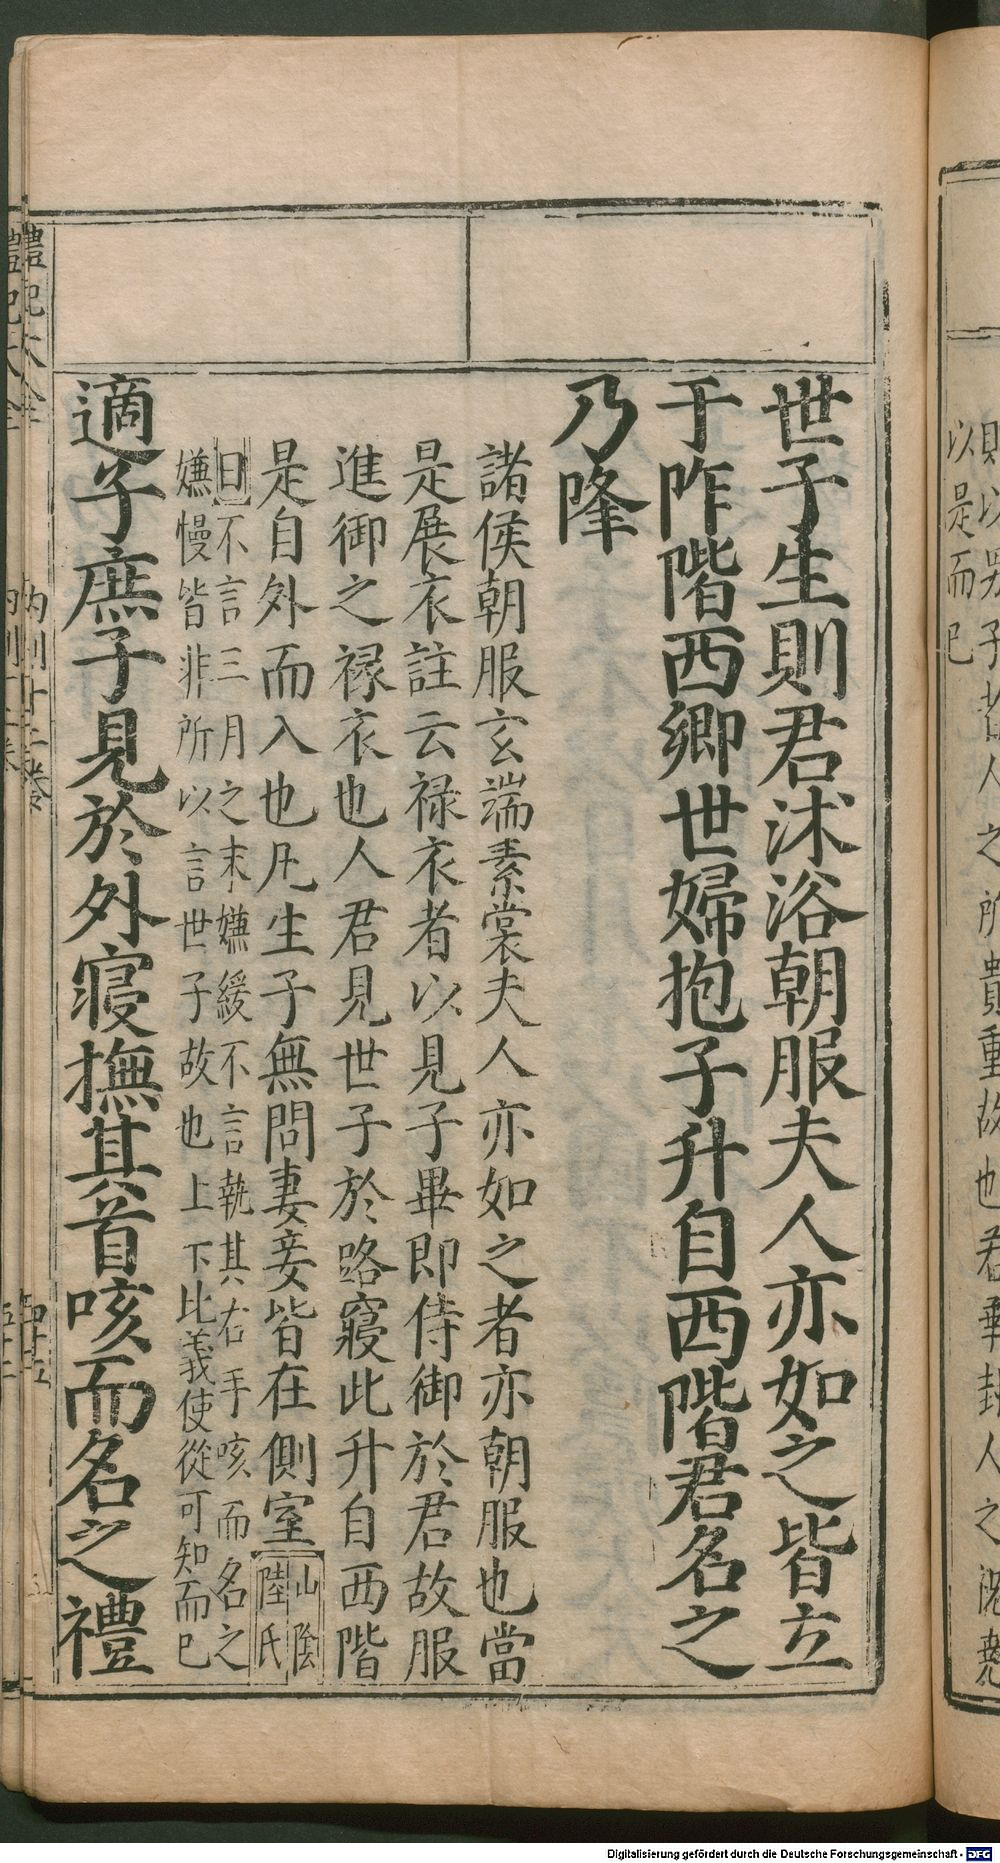 則以男子者人之所貴重故也君舉封人之祝堯
以是而已
世子生則君沐浴朝服夫人亦如之皆立
于阼階西卿世婦抱子升自西階君名之
乃降
諸侯朝服玄端素裳夫人亦如之者亦朝服也當
是展衣註云褖衣者以見子畢即侍御於君故服
進御之褖衣也人君見世子於路寢此升自西階
是自外而入也凡生子無問妻妾皆在側室山陰陸氏
曰不言三月之末嫌緩不言執其右手咳而名之
嫌慢皆非所以言世子故也上下比義使從可知而已
適子庶子見於外寢撫其首咳而名之禮
禮記大全
內則十二卷
四十五
Digitalisierung gefördert durch die Deutsche Forschungsgemeinschaft - DFG